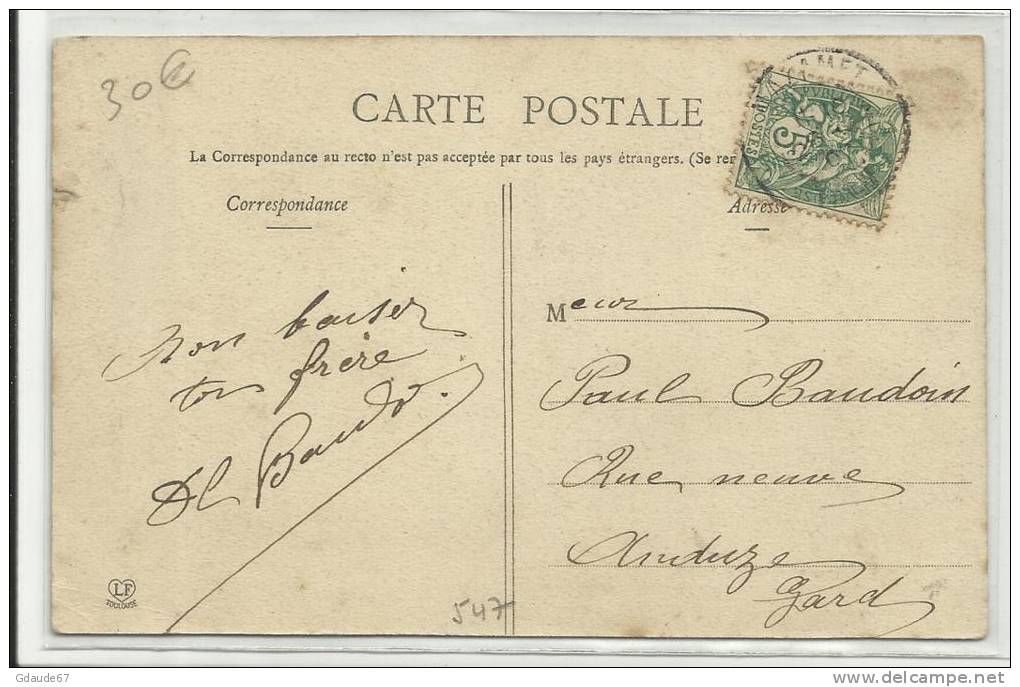 30€
CARTE POSTALE
La Correspondance au recto n'est pas acceptée par tous les pays étrangers. (Se ren
Correspondance
Adresse
POSTES
5
AMET
Mon baiser
ton frère
Baud
Meur
Paul Baudoin
Rue neuve
Anduze
Gard
LF
TOULOUSE
547
Gdaude67
www.delcampe.net